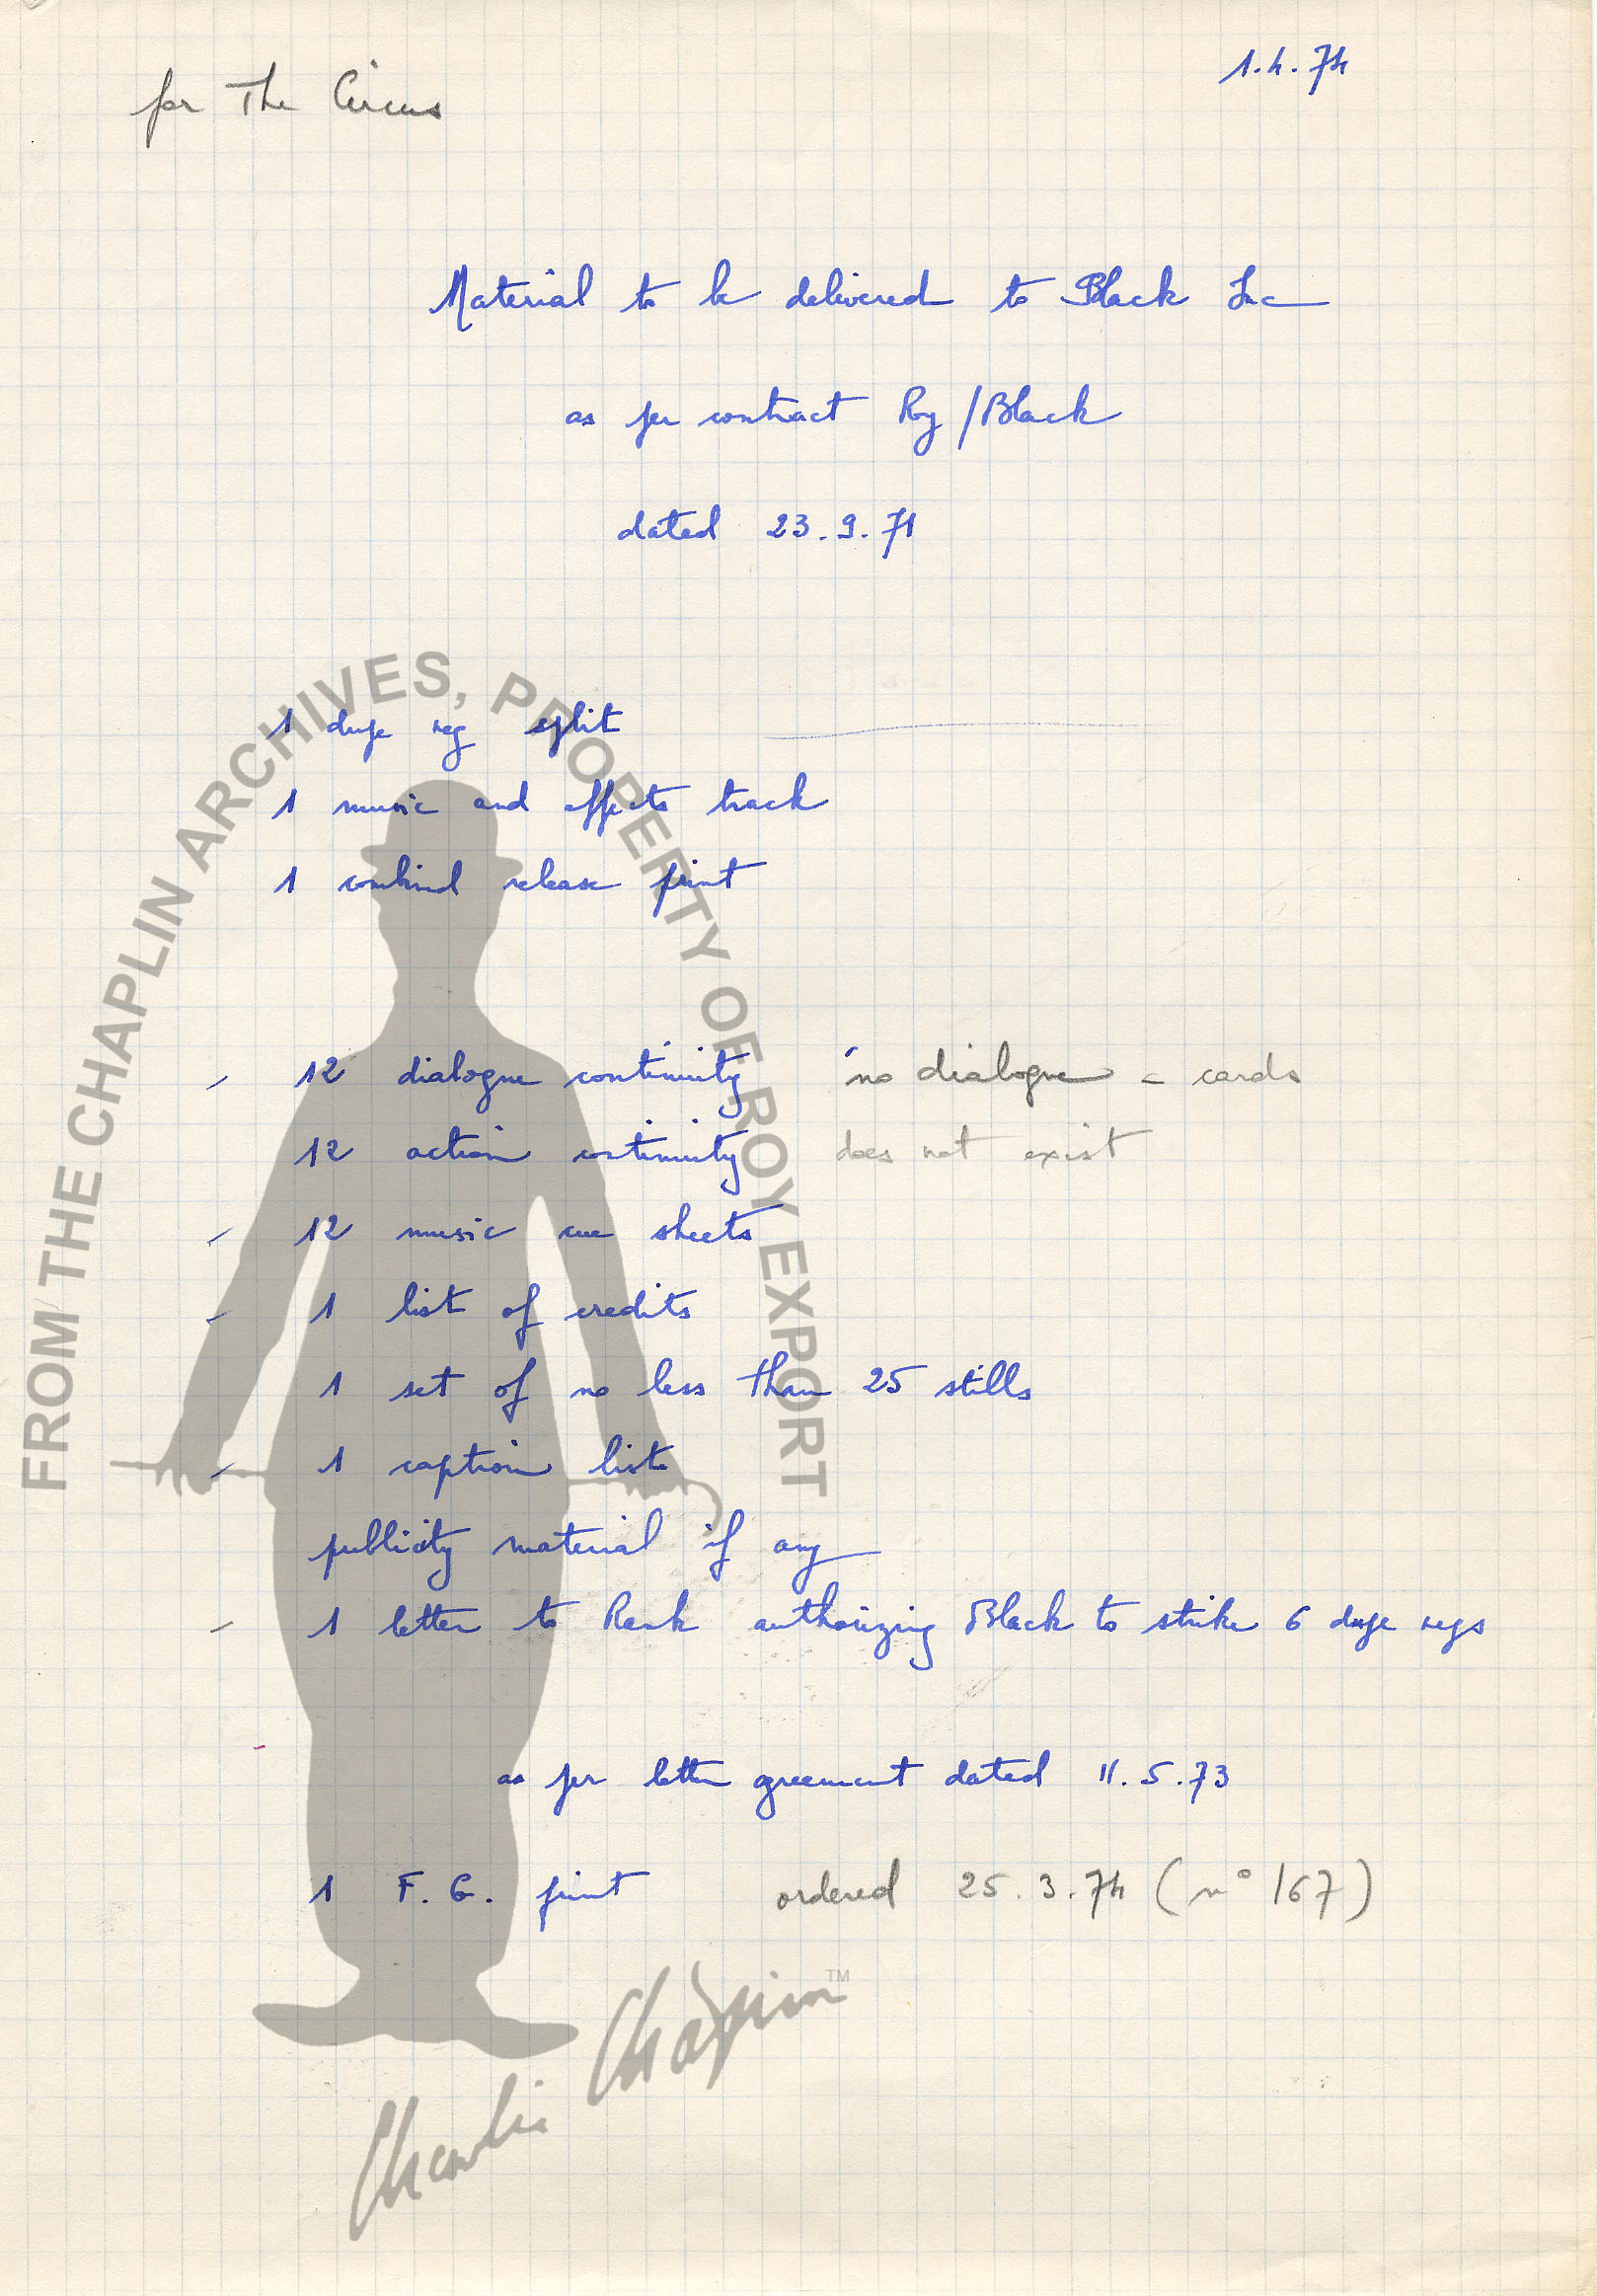 for The Circus
1.4.74
Material to be delivered to Black Inc
as per contract Roy/Black
dated 23.9.71
1 dupe neg split
1 music and effects track
1 combined release print
12 dialogue continuity no dialogue = cards
12 action continuity does not exist
12 music cue sheets
1 list of credits
1 set of no less than 25 stills
1 caption list
publicity material if any
1 letter to Rank authorizing Black to strike 6 dupe negs
as per letter agreement dated 11.5.73
1 F.G. print ordered 25.3.74 (n° 167)
FROM THE CHAPLIN ARCHIVES, PROPERTY OF ROY EXPORT
Charlie Chaplin TM